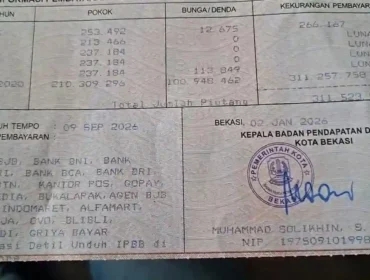 POKOK BUNGA/DENDA KEKURANGAN PEMBAYAR
253.492 12.675 266.167
213.466 0 LUNA
237.184 0 LUNA
237.184 0 LUNA
237.184 113.849
2020 210.309.296 100.948.462 311.257.758
Total Jumlah Piutang 311.523.
UH TEMPO : 09 SEP 2026
PEMBAYARAN :
BJB, BANK BNI, BANK
NI, BANK BCA, BANK BRI
TN, KANTOR POS, GOPAY,
DIA, BUKALAPAK, AGEN BJB
INDOMARET, ALFAMART,
JA, OVO, BLIBLI,
DI, GRIYA BAYAR
asi Detil Unduh IPBB di
BEKASI, 02 JAN 2026
KEPALA BADAN PENDAPATAN D
KOTA BEKASI
PEMERINTAH KOTA
BEKASI
MUHAMMAD SOLIKHIN, S.
NIP 19750910199